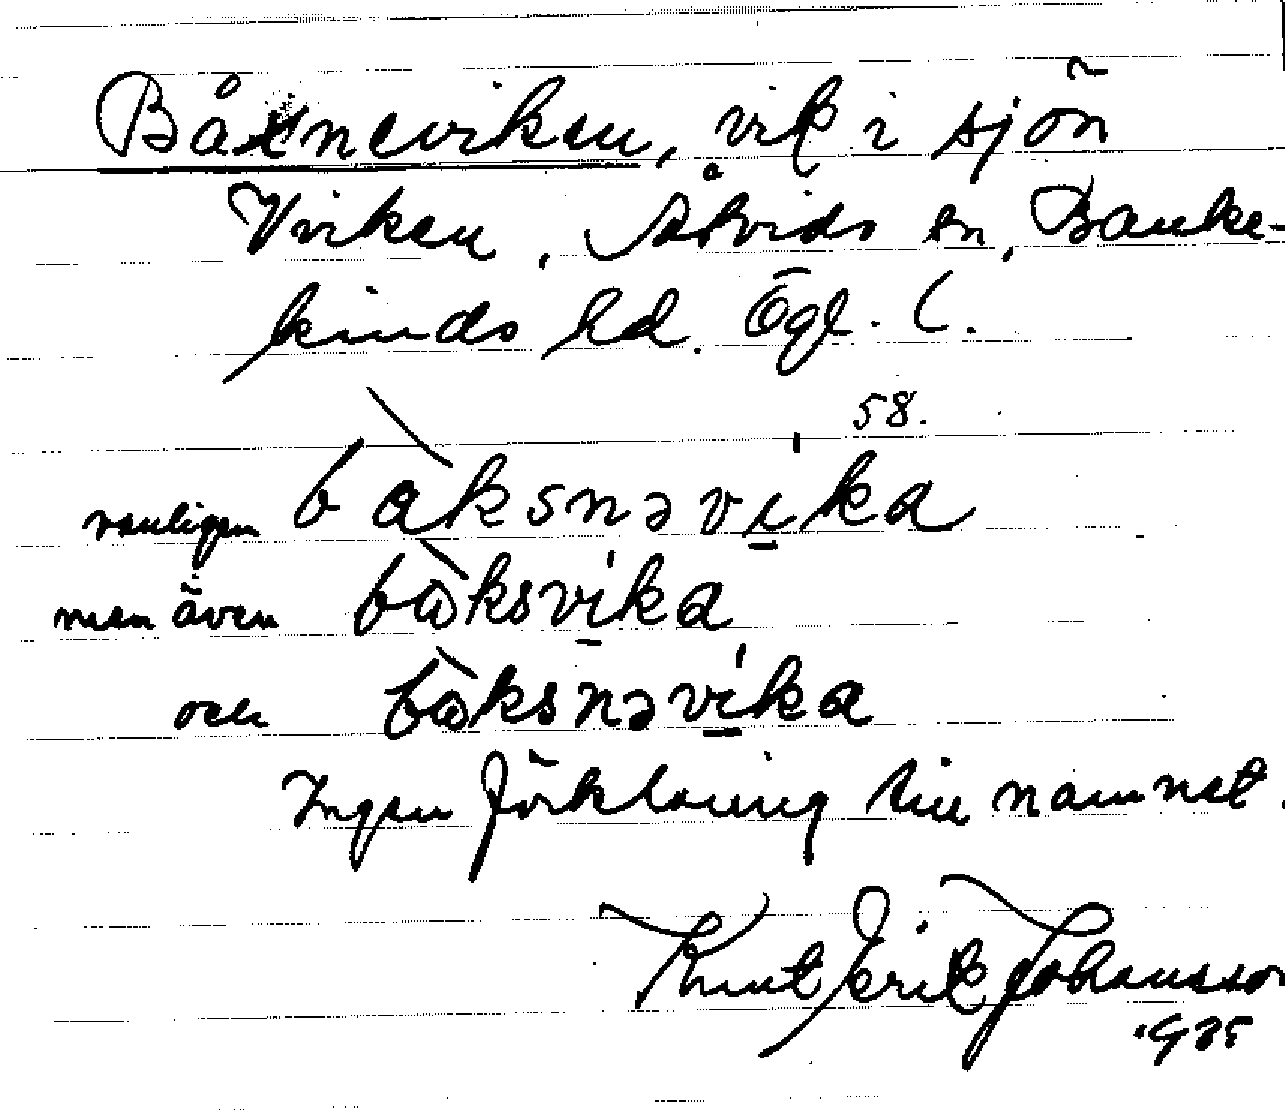 Båxneviken, vik i sjön
Virken, Åtvids sn, Banke-
kinds hd. Ögl. l.
58.
vanligen bàksnəvi̱ka
men även bàksvi̱ka
och bàksnəvi̱ka
Ingen förklaring till namnet.
Knut Erik Johansson
1925